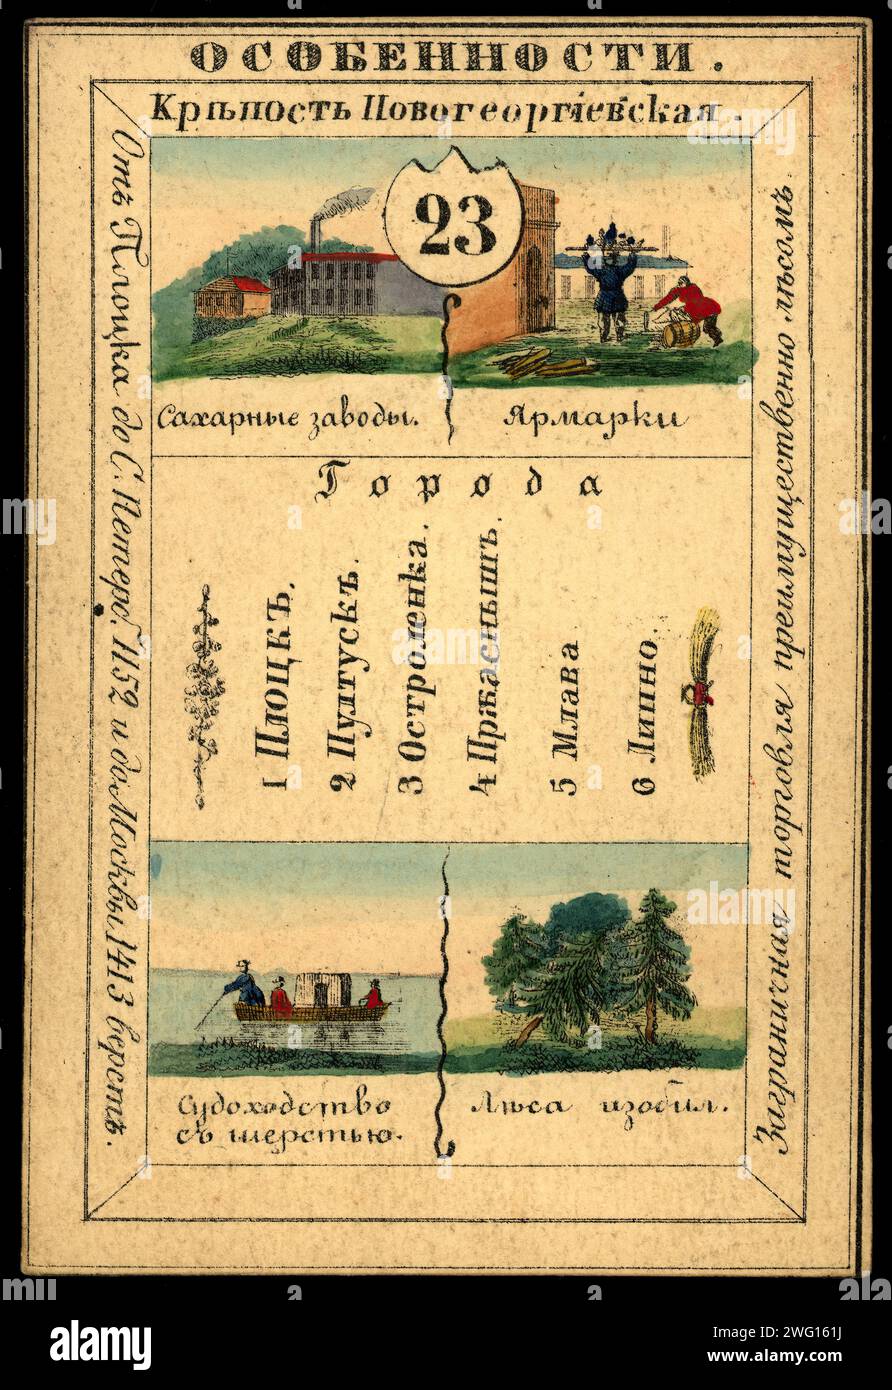 ОСОБЕННОСТИ.
Крѣпость Новогеоргіевская.
Отъ Плоцка до С. Петерб. 1152 и до Москвы 1413 верстъ.
Заграничная торговля преимущественно лѣсомъ.
23
Сахарные заводы.
Ярмарки
Города
1 Плоцкъ.
2 Пултускъ.
3 Остроленка.
4 Пржаснышъ.
5 Млава
6 Липно.
Судоходство
съ шерстью.
Лѣса изобил.
alamy
Image ID: 2WG161J
www.alamy.com